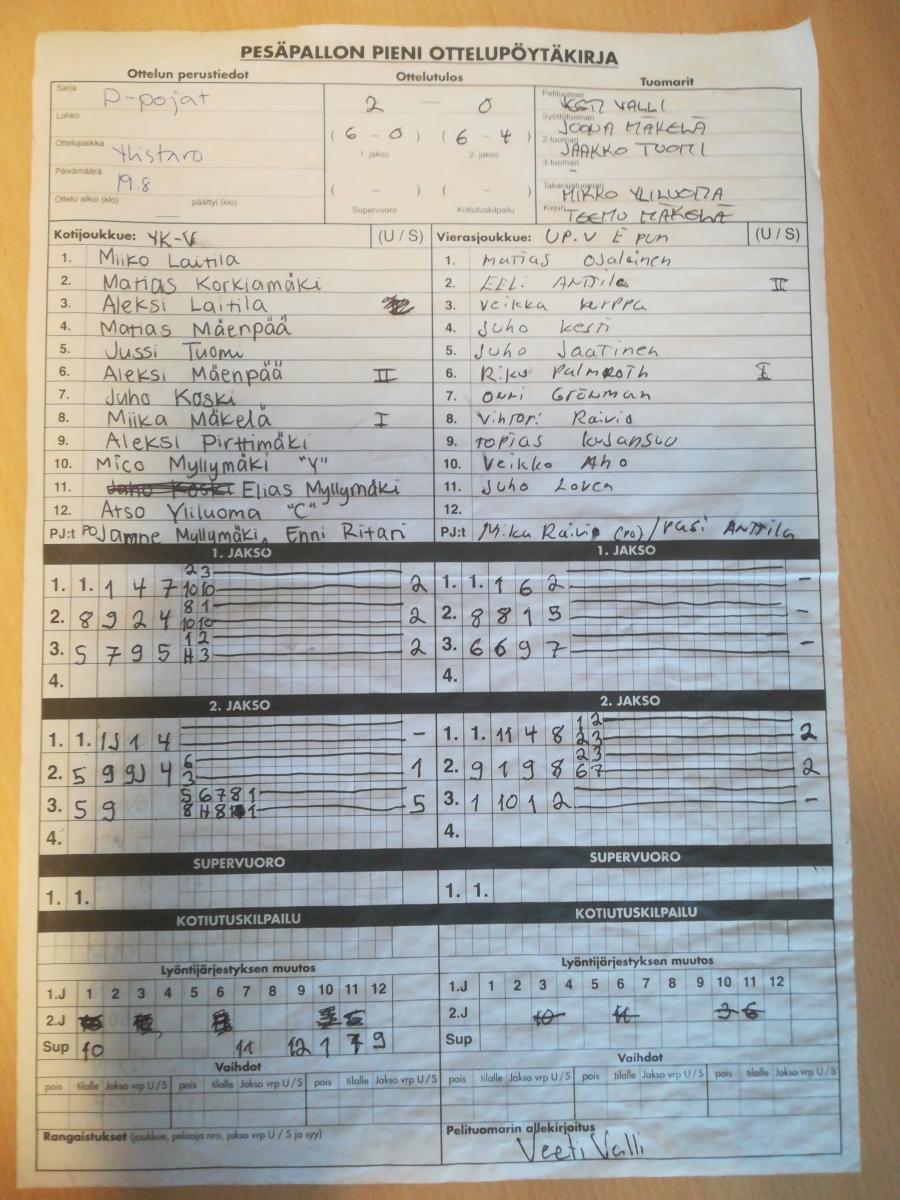 PESÄPALLON PIENI OTTELUPÖYTÄKIRJA
Ottelun perustiedot Ottelutulos Tuomarit
Sarja D-pojat
Lohko
Ottelupaikka Ylistaro
Päivämäärä 19.8
Ottelu alkoi (klo) päättyi (klo)
2 — 0
( 6 - 0 ) ( 6 - 4 )
1. jakso 2. jakso
( - ) ( - )
Supervuoro Kotiutuskilpailu
Pelituomari VEETI VALLI
Syöttötuomari JOONA MÄKELÄ
2-tuomari JAAKKO TUOMI
3-tuomari -
Takarajatuomari MIKKO YLILUOMA
Kirjuri TEEMU MÄKELÄ
Kotijoukkue: YK-V (U / S)
1. Miiko Laitila
2. Matias Korkiamäki
3. Aleksi Laitila
4. Matias Mäenpää
5. Jussi Tuomi
6. Aleksi Mäenpää II
7. Juho Koski
8. Miika Mäkelä I
9. Aleksi Pirttimäki
10. Mico Myllymäki "Y"
11. Elias Myllymäki
12. Atso Yliluoma "C"
PJ:t PO Janne Myllymäki, Enni Ritari
Vierasjoukkue: UP-V E pun (U / S)
1. Matias Ojalainen
2. EELI ANTTila II
3. Veikka kurppa
4. Juho kesti
5. Juho Jaatinen
6. Riku Palmroth I
7. ONNI Grönman
8. Vihtori Raivio
9. Topias kujansuu
10. Veikko Aho
11. Juho Loven
12.
PJ:t Mika Raivio (PO) / Pasi ANTTila
1. JAKSO
1. 1. 1 4 7 2 3 10 10 2
2. 8 9 2 4 8 1 10 10 2
3. 5 7 9 5 1 2 H 3 2
4.
1. JAKSO
1. 1. 1 6 2 -
2. 8 8 1 3 -
3. 6 6 9 7 -
4.
2. JAKSO
1. 1. 1J 1 4 -
2. 5 9 9J 4 6 3 1
3. 5 9 5 6 7 8 1 8 H 8 1 5
4.
2. JAKSO
1. 1. 11 4 8 1 2 2 3 2
2. 9 1 9 8 2 3 6 7 2
3. 1 10 1 2 -
4.
SUPERVUORO
1. 1.
SUPERVUORO
1. 1.
KOTIUTUSKILPAILU
KOTIUTUSKILPAILU
Lyöntijärjestyksen muutos
1.J 1 2 3 4 5 6 7 8 9 10 11 12
2.J
Sup 10 11 12 1 7 9
Lyöntijärjestyksen muutos
1.J 1 2 3 4 5 6 7 8 9 10 11 12
2.J 10 11 3 6
Sup
Vaihdot
pois tilalle Jakso vrp U / S pois tilalle Jakso vrp U / S pois tilalle Jakso vrp U / S
Vaihdot
pois tilalle Jakso vrp U / S pois tilalle Jakso vrp U / S pois tilalle Jakso vrp U / S
Rangaistukset (joukkue, pelaaja nro, jakso vrp U / S ja syy)
Pelituomarin allekirjoitus
Veeti Valli